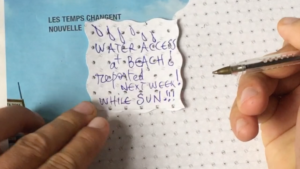 LES TEMPS CHANGENT
NOUVELLE
WATER ACCESS
at BEACH
repeated
NEXT WEEK!
WHILE SUN!!?